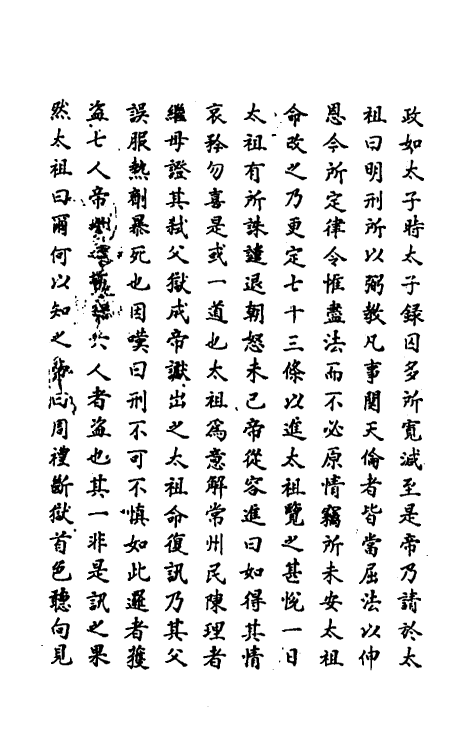 政如太子時太子録囚多所寛減至是帝乃請於太
祖曰明刑所以弼教凡事関天倫者皆當屈法以伸
恩今所定律令惟盡法而不必原情竊所未安太祖
命改之乃更定七十三條以進太祖覽之甚悅一日
太祖有所誅譴退朝怒未已帝從容進曰如得其情
哀矜勿喜是或一道也太祖為意解常州民陳理者
繼母證其弑父獄成帝讞出之太祖命復訊乃其父
誤服熱劑暴死也因嘆曰刑不可不慎如此邏者獲
盗七人帝六人者盗也其一非是訊之果
然太祖曰爾何以知之帝曰周禮斷獄首色聽向見